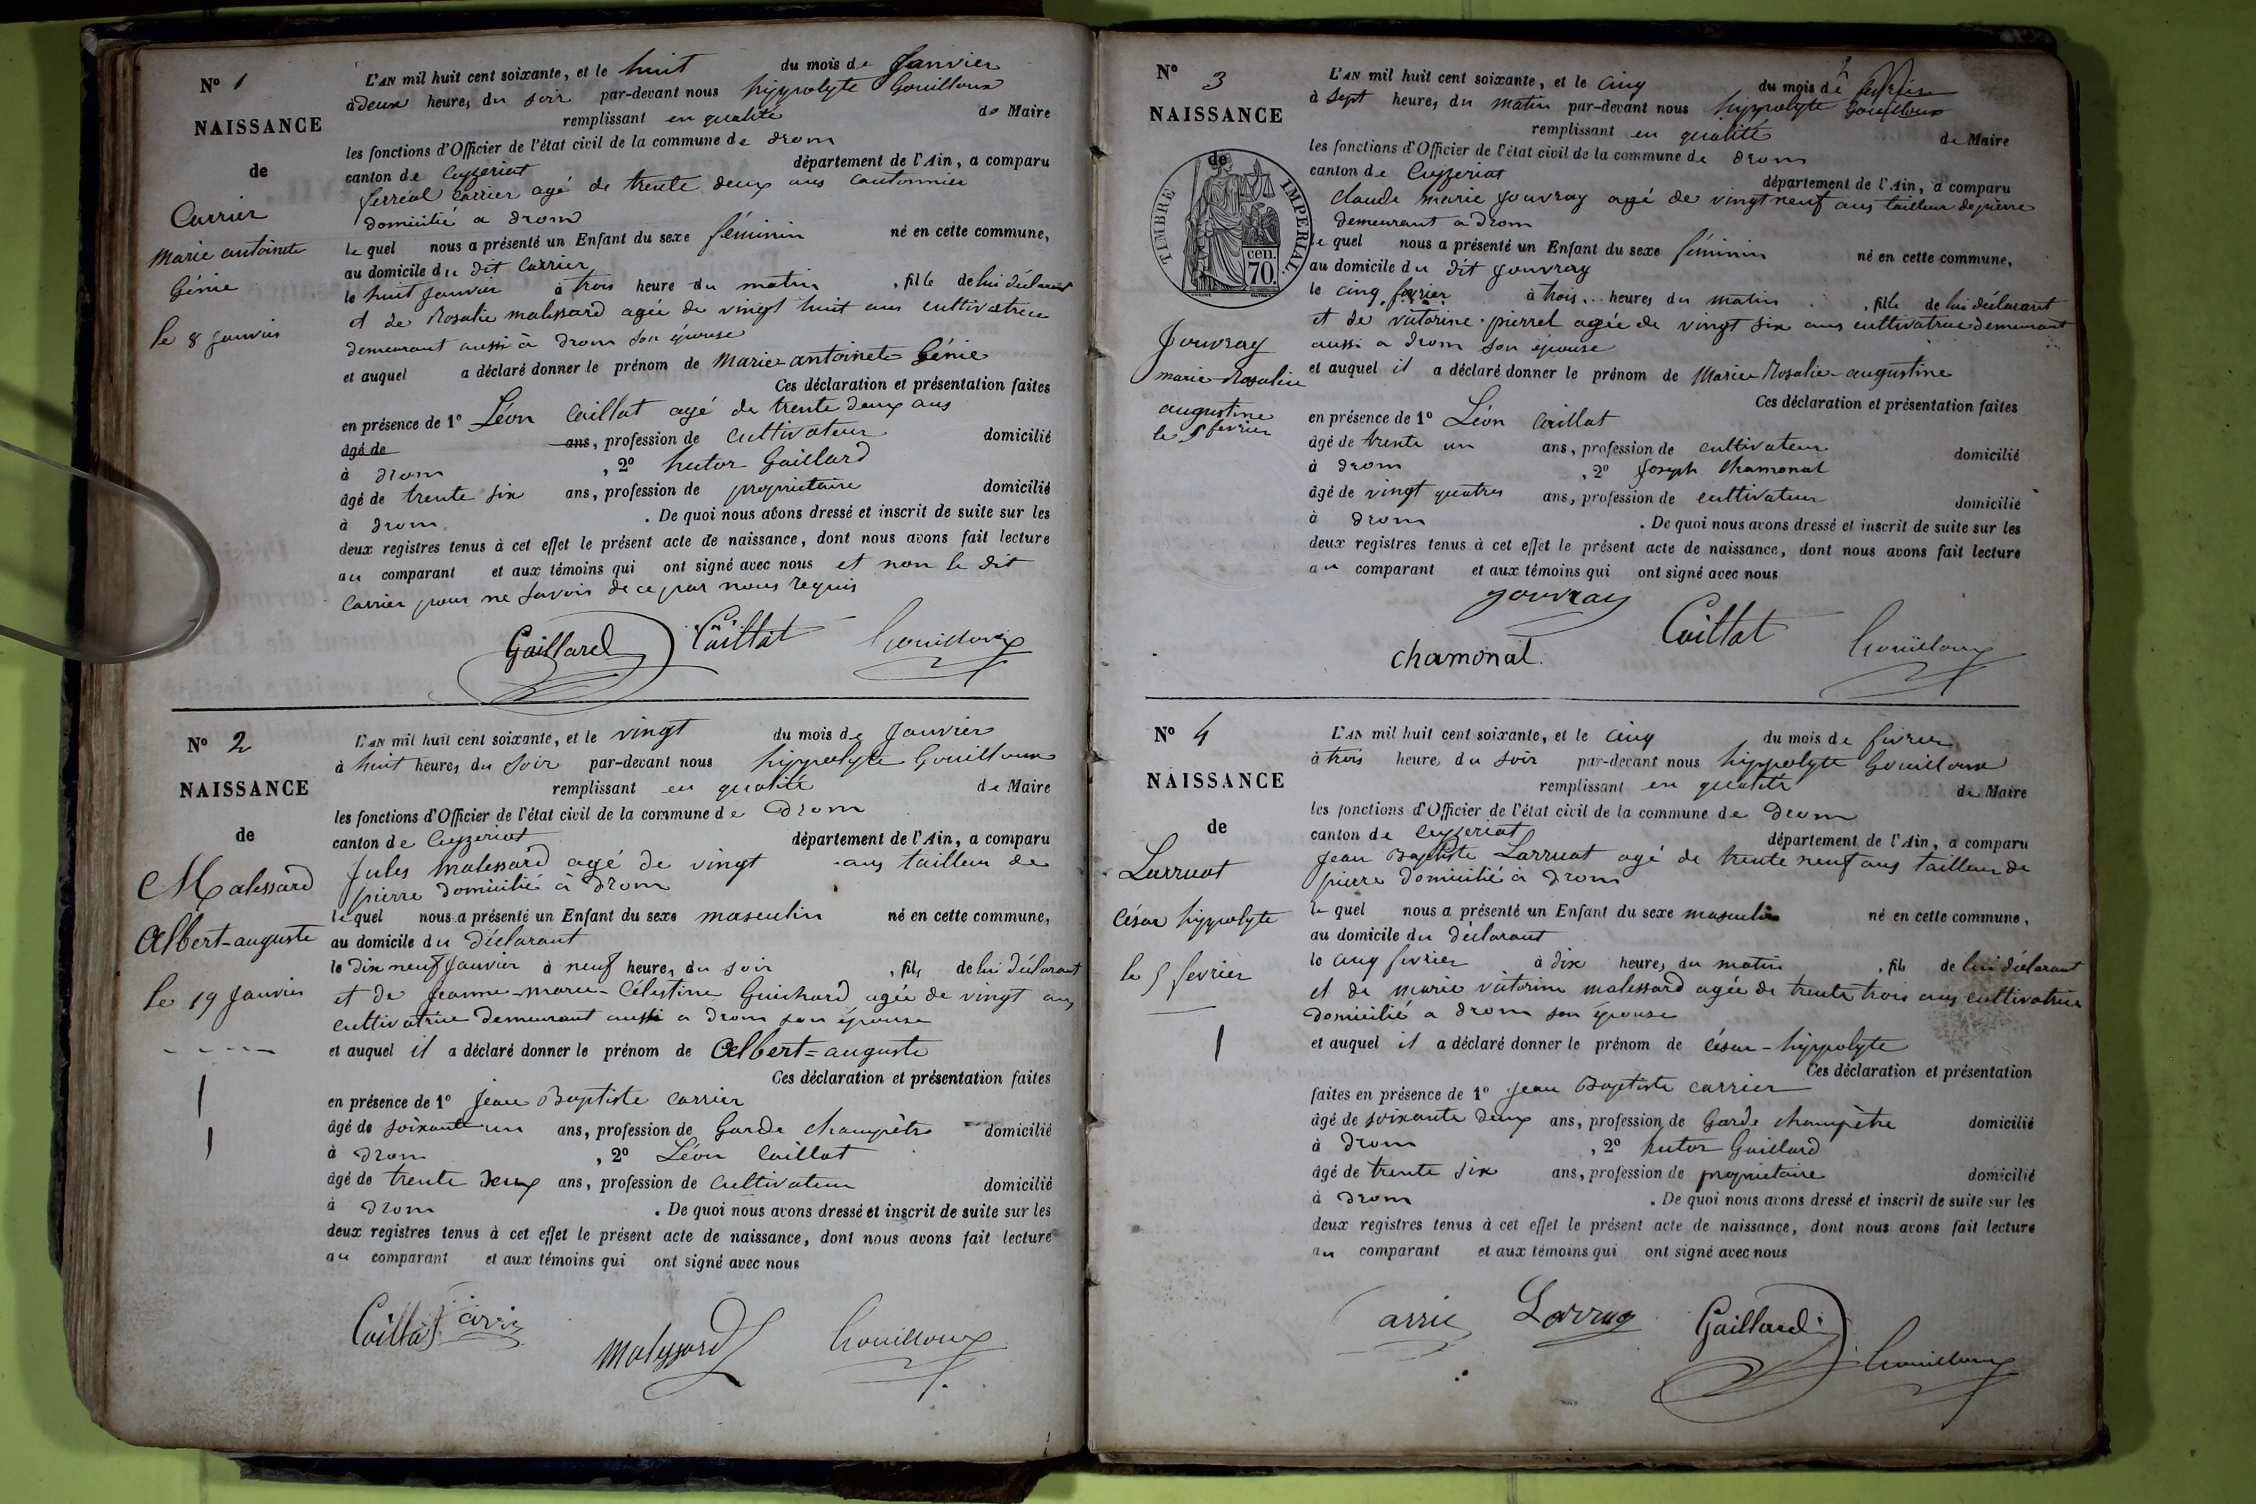 No 1
NAISSANCE
de
Carrier
Marie antoinete
Génie
le 8 Janvier
L'AN mil huit cent soixante, et le huit du mois de Janvier
à deux heures du soir par-devant nous hyppolyte Gouilloux
remplissant en qualité de Maire
les fonctions d'Officier de l'état civil de la commune de drom
canton de Ceyzeriat département de l'Ain, a comparu
ferréol Carrier agé de trente deux ans cantonnier
domicilié a drom
le quel nous a présenté un Enfant du sexe féminin né en cette commune,
au domicile du dit Carrier
le huit Janvier à trois heure du matin, fille de lui déclarant
et de Rosalie malessard agée de vingt huit ans cultivatrice
demeurant aussi à drom son épouse
et auquel a déclaré donner le prénom de Marie antoinete Génie
Ces déclaration et présentation faites
en présence de 1º Léon Caillat agé de trente deux ans
âgé de ans, profession de cultivateur domicilié
à drom, 2º hector Gaillard
âgé de trente six ans, profession de propriétaire domicilié
à drom. De quoi nous avons dressé et inscrit de suite sur les
deux registres tenus à cet effet le présent acte de naissance, dont nous avons fait lecture
au comparant et aux témoins qui ont signé avec nous et non le dit
Carrier pour ne savoir de ce par nous requis
Gaillard Caillat Gouilloux
No 2
NAISSANCE
de
Malessard
Albert-auguste
le 19 Janvier
L'AN mil huit cent soixante, et le vingt du mois de Janvier
à huit heures du soir par-devant nous hyppolyte Gouilloux
remplissant en qualité de Maire
les fonctions d'Officier de l'état civil de la commune de Drom
canton de Ceyzeriat département de l'Ain, a comparu
Jules malessard agé de vingt ans tailleur de
pierre domicilié à drom
le quel nous a présenté un Enfant du sexe masculin né en cette commune,
au domicile du déclarant
le dix neuf Janvier à neuf heures du soir, fils de lui déclarant
et de Jeanne-marie-Célestine Guichard agée de vingt ans
cultivatrice demeurant aussi a drom son épouse
et auquel il a déclaré donner le prénom de Albert=auguste
Ces déclaration et présentation faites
en présence de 1º Jean Baptiste carrier
âgé de soixante un ans, profession de Garde champêtre domicilié
à drom, 2º Léon Caillat
âgé de trente deux ans, profession de cultivateur domicilié
à drom. De quoi nous avons dressé et inscrit de suite sur les
deux registres tenus à cet effet le présent acte de naissance, dont nous avons fait lecture
au comparant et aux témoins qui ont signé avec nous
Caillat Malessard Gouilloux
No 3
NAISSANCE
de
TIMBRE IMPERIAL.
cen. 70.
Jouvray
marie Rosalie
augustine
le 5 fevrier
L'AN mil huit cent soixante, et le cinq du mois de
à sept heures du matin par-devant nous hyppolyte Gouilloux
remplissant en qualité de Maire
les fonctions d'Officier de l'état civil de la commune de drom
canton de Ceyzeriat département de l'Ain, a comparu
Claude marie Jouvray agé de vingt neuf ans tailleur de pierre
demeurant a drom
le quel nous a présenté un Enfant du sexe féminin né en cette commune,
au domicile du dit Jouvray
le cinq fevrier à trois heures du matin, fille de lui déclarant
et de victorine pierrel agée de vingt six ans cultivatrice demeurant
aussi a drom son épouse
et auquel il a déclaré donner le prénom de Marie Rosalie-augustine
Ces déclaration et présentation faites
en présence de 1º Léon Caillat
âgé de trente un ans, profession de cultivateur domicilié
à drom, 2º Joseph Chamonal
âgé de vingt quatres ans, profession de cultivateur domicilié
à drom. De quoi nous avons dressé et inscrit de suite sur les
deux registres tenus à cet effet le présent acte de naissance, dont nous avons fait lecture
au comparant et aux témoins qui ont signé avec nous
Jouvray
chamonal. Caillat Gouilloux
No 4
NAISSANCE
de
Larruat
César hyppolyte
le 5 fevrier
L'AN mil huit cent soixante, et le cinq du mois de fevrier
à trois heure du soir par-devant nous hyppolyte Gouilloux
remplissant en qualité de Maire
les fonctions d'Officier de l'état civil de la commune de Drom
canton de Ceyzeriat département de l'Ain, a comparu
Jean Baptiste Larruat agé de trente neuf ans tailleur de
pierre domicilié à drom
le quel nous a présenté un Enfant du sexe masculin né en cette commune,
au domicile du déclarant
le cinq fevrier à dix heures du matin, fils de lui déclarant
et de marie victorine malessard agée de trente trois ans cultivatrice
domicilié a drom son épouse
et auquel il a déclaré donner le prénom de César-hyppolyte
Ces déclaration et présentation
faites en présence de 1º Jean Baptiste carrier
âgé de soixante deux ans, profession de Garde champêtre domicilié
à drom, 2º hector Gaillard
âgé de trente six ans, profession de propriétaire domicilié
à drom. De quoi nous avons dressé et inscrit de suite sur les
deux registres tenus à cet effet le présent acte de naissance, dont nous avons fait lecture
au comparant et aux témoins qui ont signé avec nous
Gaillard Gouilloux